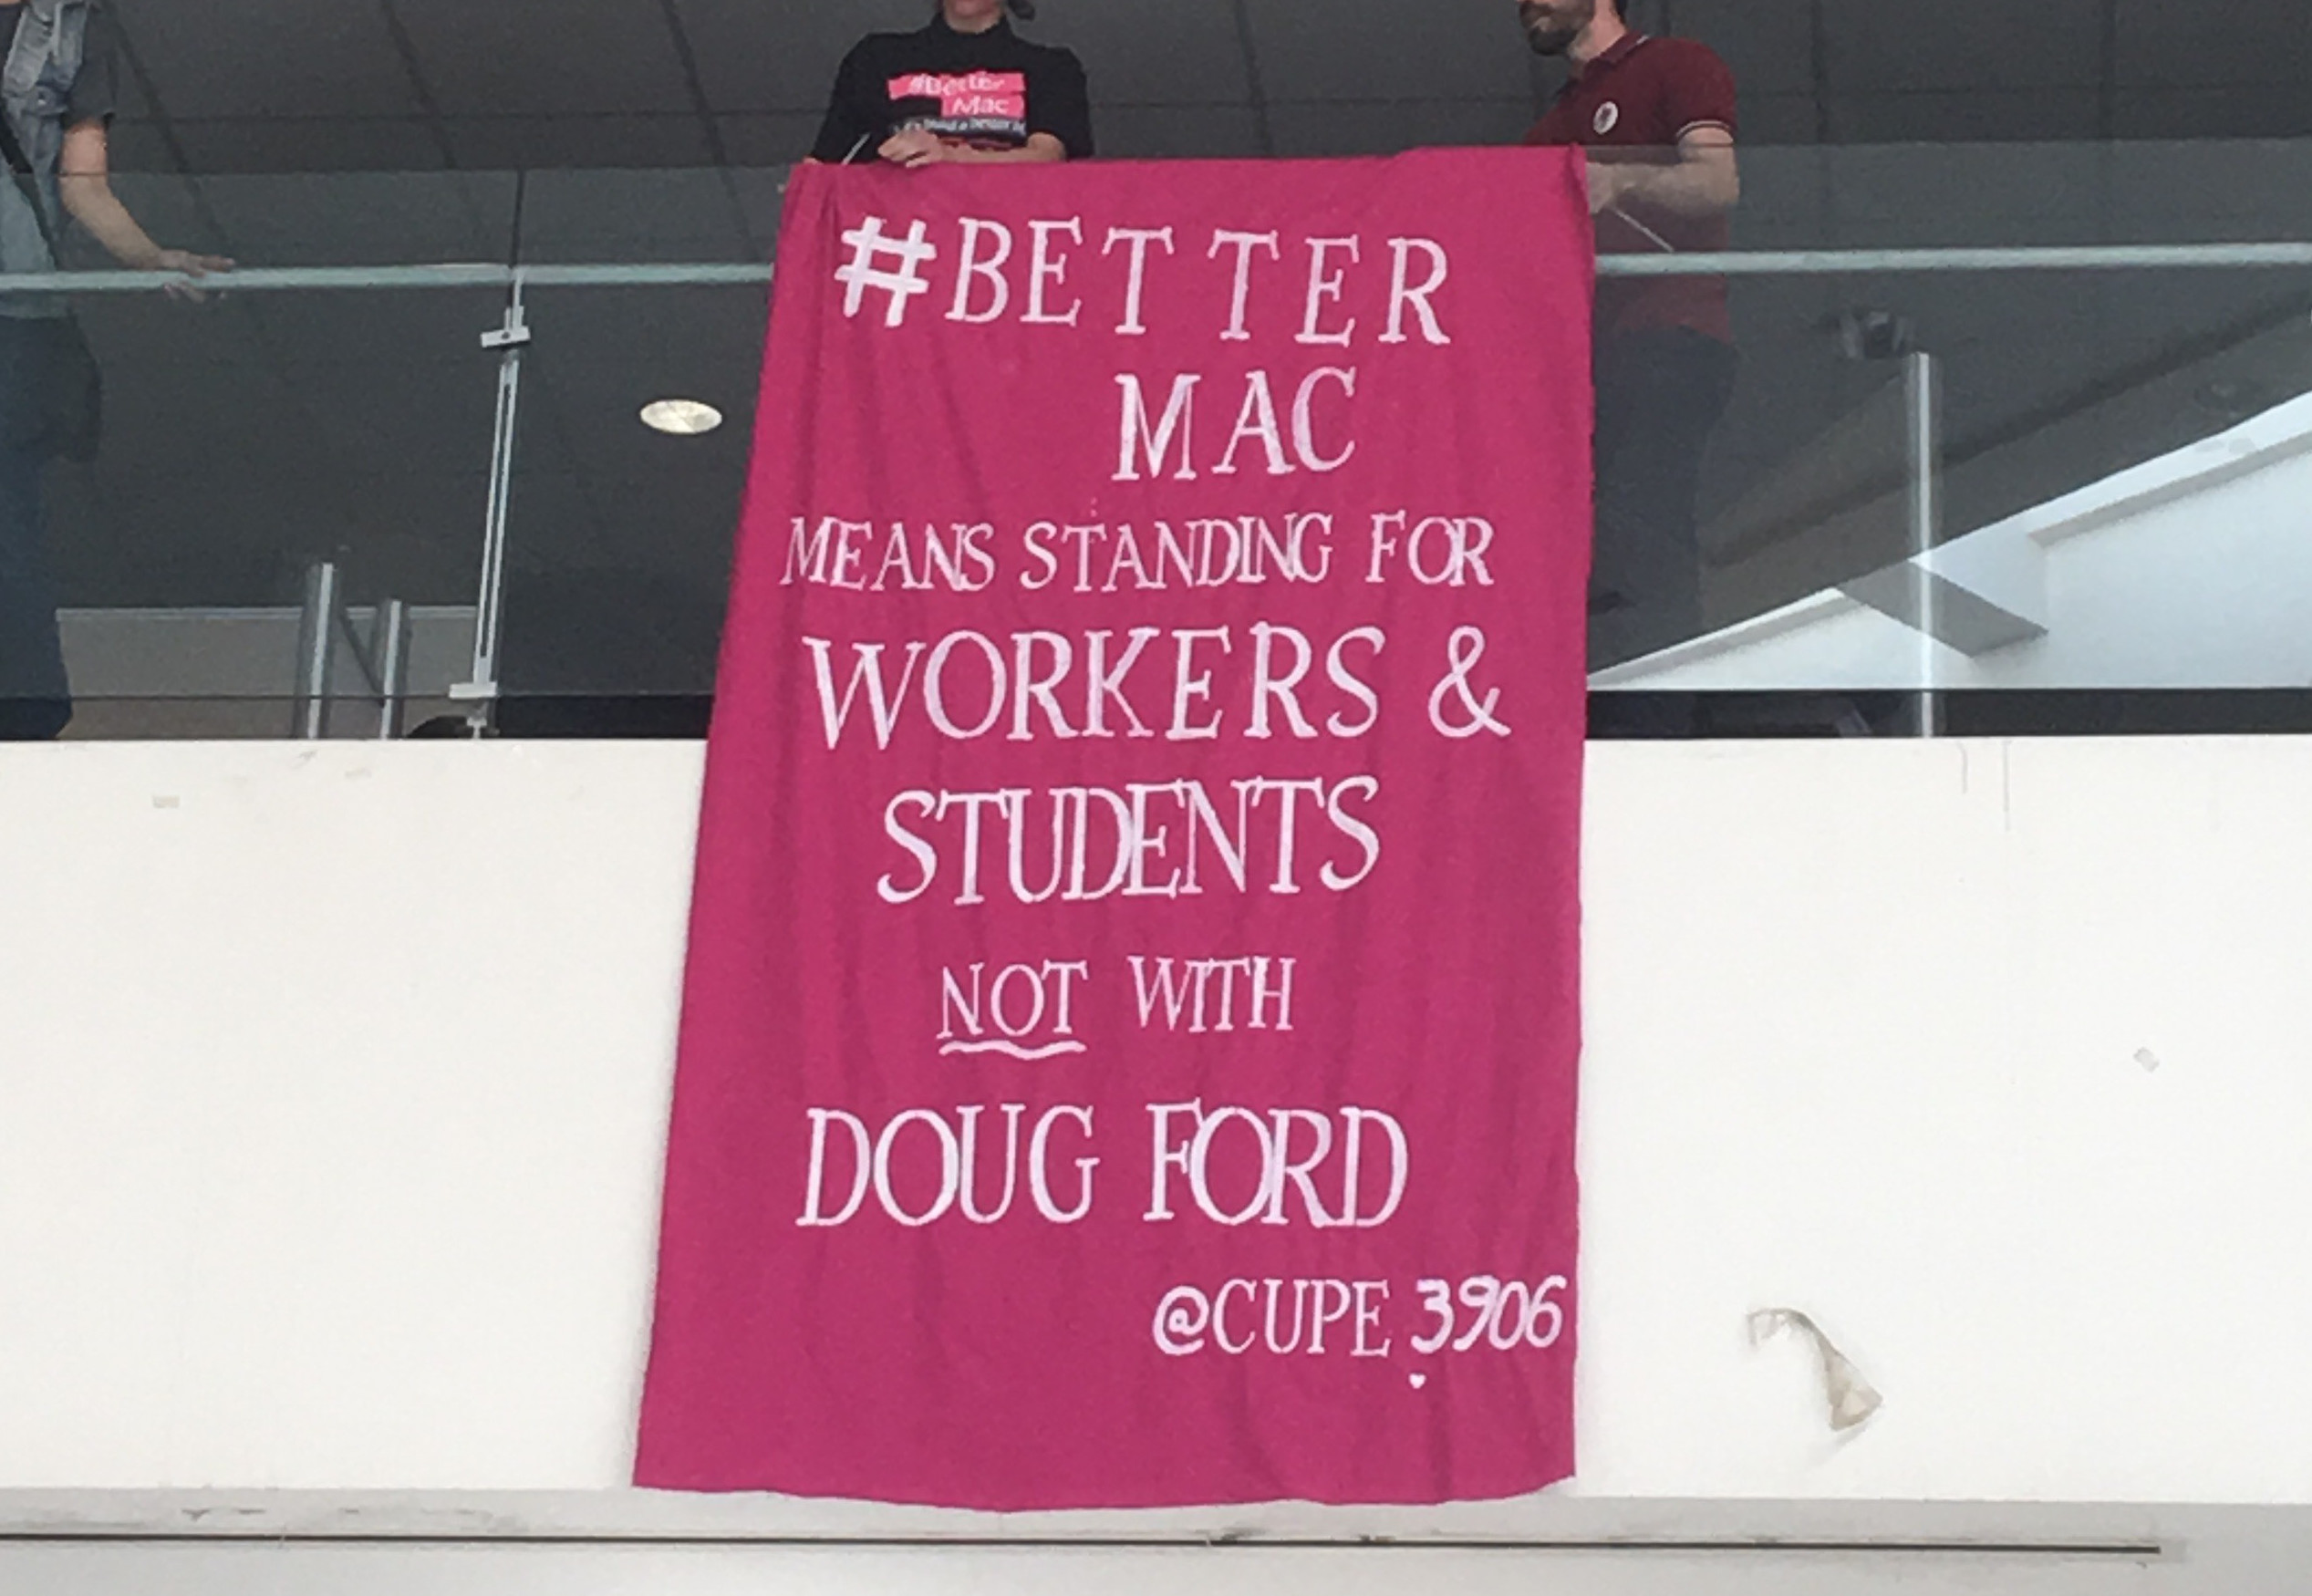 #Better
Mac
#BETTER
MAC
MEANS STANDING FOR
WORKERS &
STUDENTS
NOT WITH
DOUG FORD
@CUPE 3906